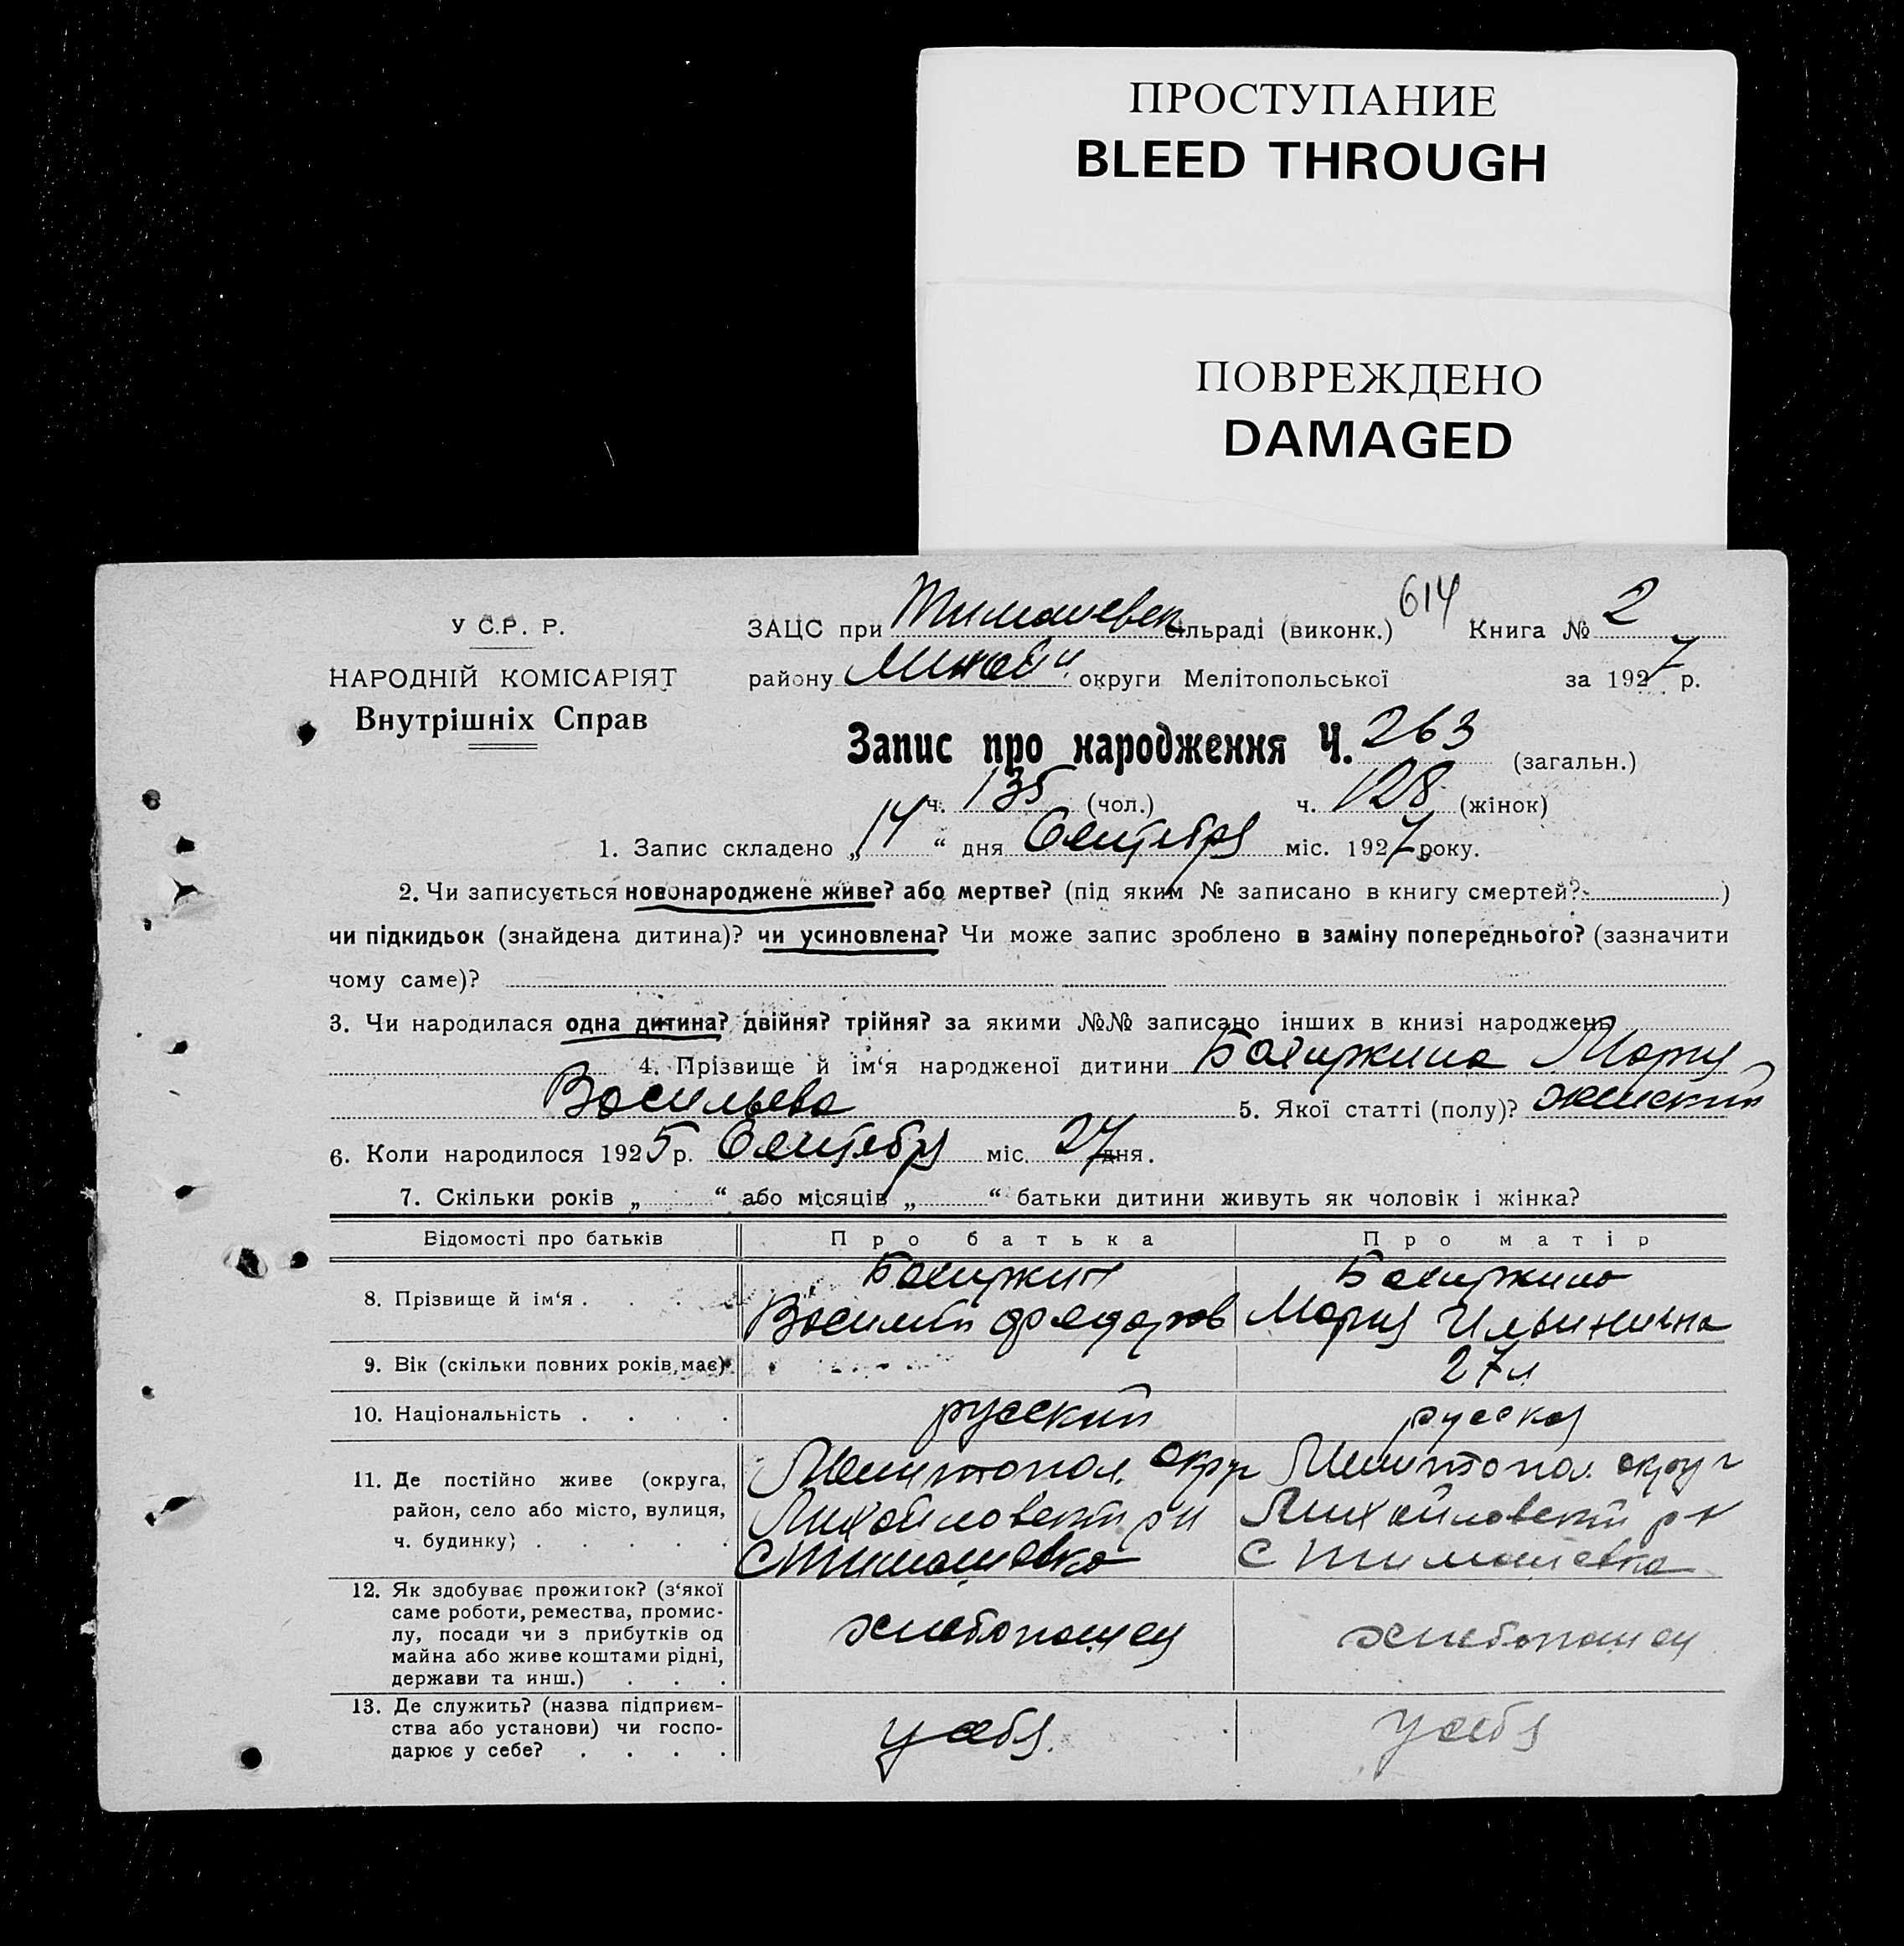 ПРОСТУПАНИЕ
BLEED THROUGH
ПОВРЕЖДЕНО
DAMAGED
614
У С.Р. Р.
ЗАЦС при Тимашевск сільраді (виконк.) Книга № 2
НАРОДНІЙ КОМІСАРІЯТ
району округи Мелітопольської за 1927 р.
Внутрішніх Справ
Запис про народження Ч. 263 (загальн.)
ч. 135 (чол.) ч. 128 (жінок)
1. Запис складено „14“ дня Сентября міс. 1927 року.
2. Чи записується новонароджене живе? або мертве? (під яким № записано в книгу смертей? )
чи підкидьок (знайдена дитина)? чи усиновлена? Чи може запис зроблено в заміну попереднього? (зазначити
чому саме)?
3. Чи народилася одна дитина? двійня? трійня? за якими №№ записано інших в книзі народжень
4. Прізвище й ім‘я народженої дитини Мария
Васильева 5. Якої статті (полу)? женский
6. Коли народилося 1925 р. Сентября міс. 27 дня.
7. Скільки років „ “ або місяців „ “ батьки дитини живуть як чоловік і жінка?
Відомості про батьків Про батька Про матір
8. Прізвище й ім‘я . . . .
Василий Фредоров Мария Ильинична
9. Вік (скільки повних років має) 27 л
10. Національність . . . . русский русская
11. Де постійно живе (округа, Мелитопол. округ Мелитопол. округ
район, село або місто, вулиця, Михайловский рн Михайловский р н
ч. будинку) . . . . . С Тимашовка С Тимашевка
12. Як здобуває прожиток? (з‘якої
саме роботи, ремества, промис-
лу, посади чи з прибутків од хлебопашец хлебопашец
майна або живе коштами рідні,
держави та инш.) . . .
13. Де служить? (назва підприєм-
ства або установи) чи госпо- у себя у себя
дарює у себе? . . . .